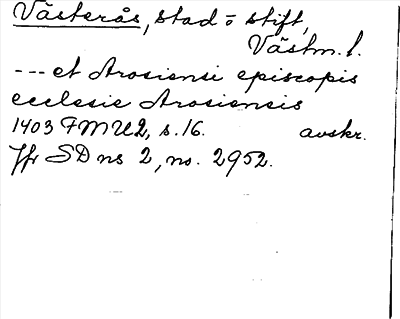 Västerås, stad o stift,
Västm. l.
--- et Arosiensi episcopis
ecclesie Arosiensis
1403 FMU2, s. 16. avskr.
Jfr SD ns 2, no. 2952.